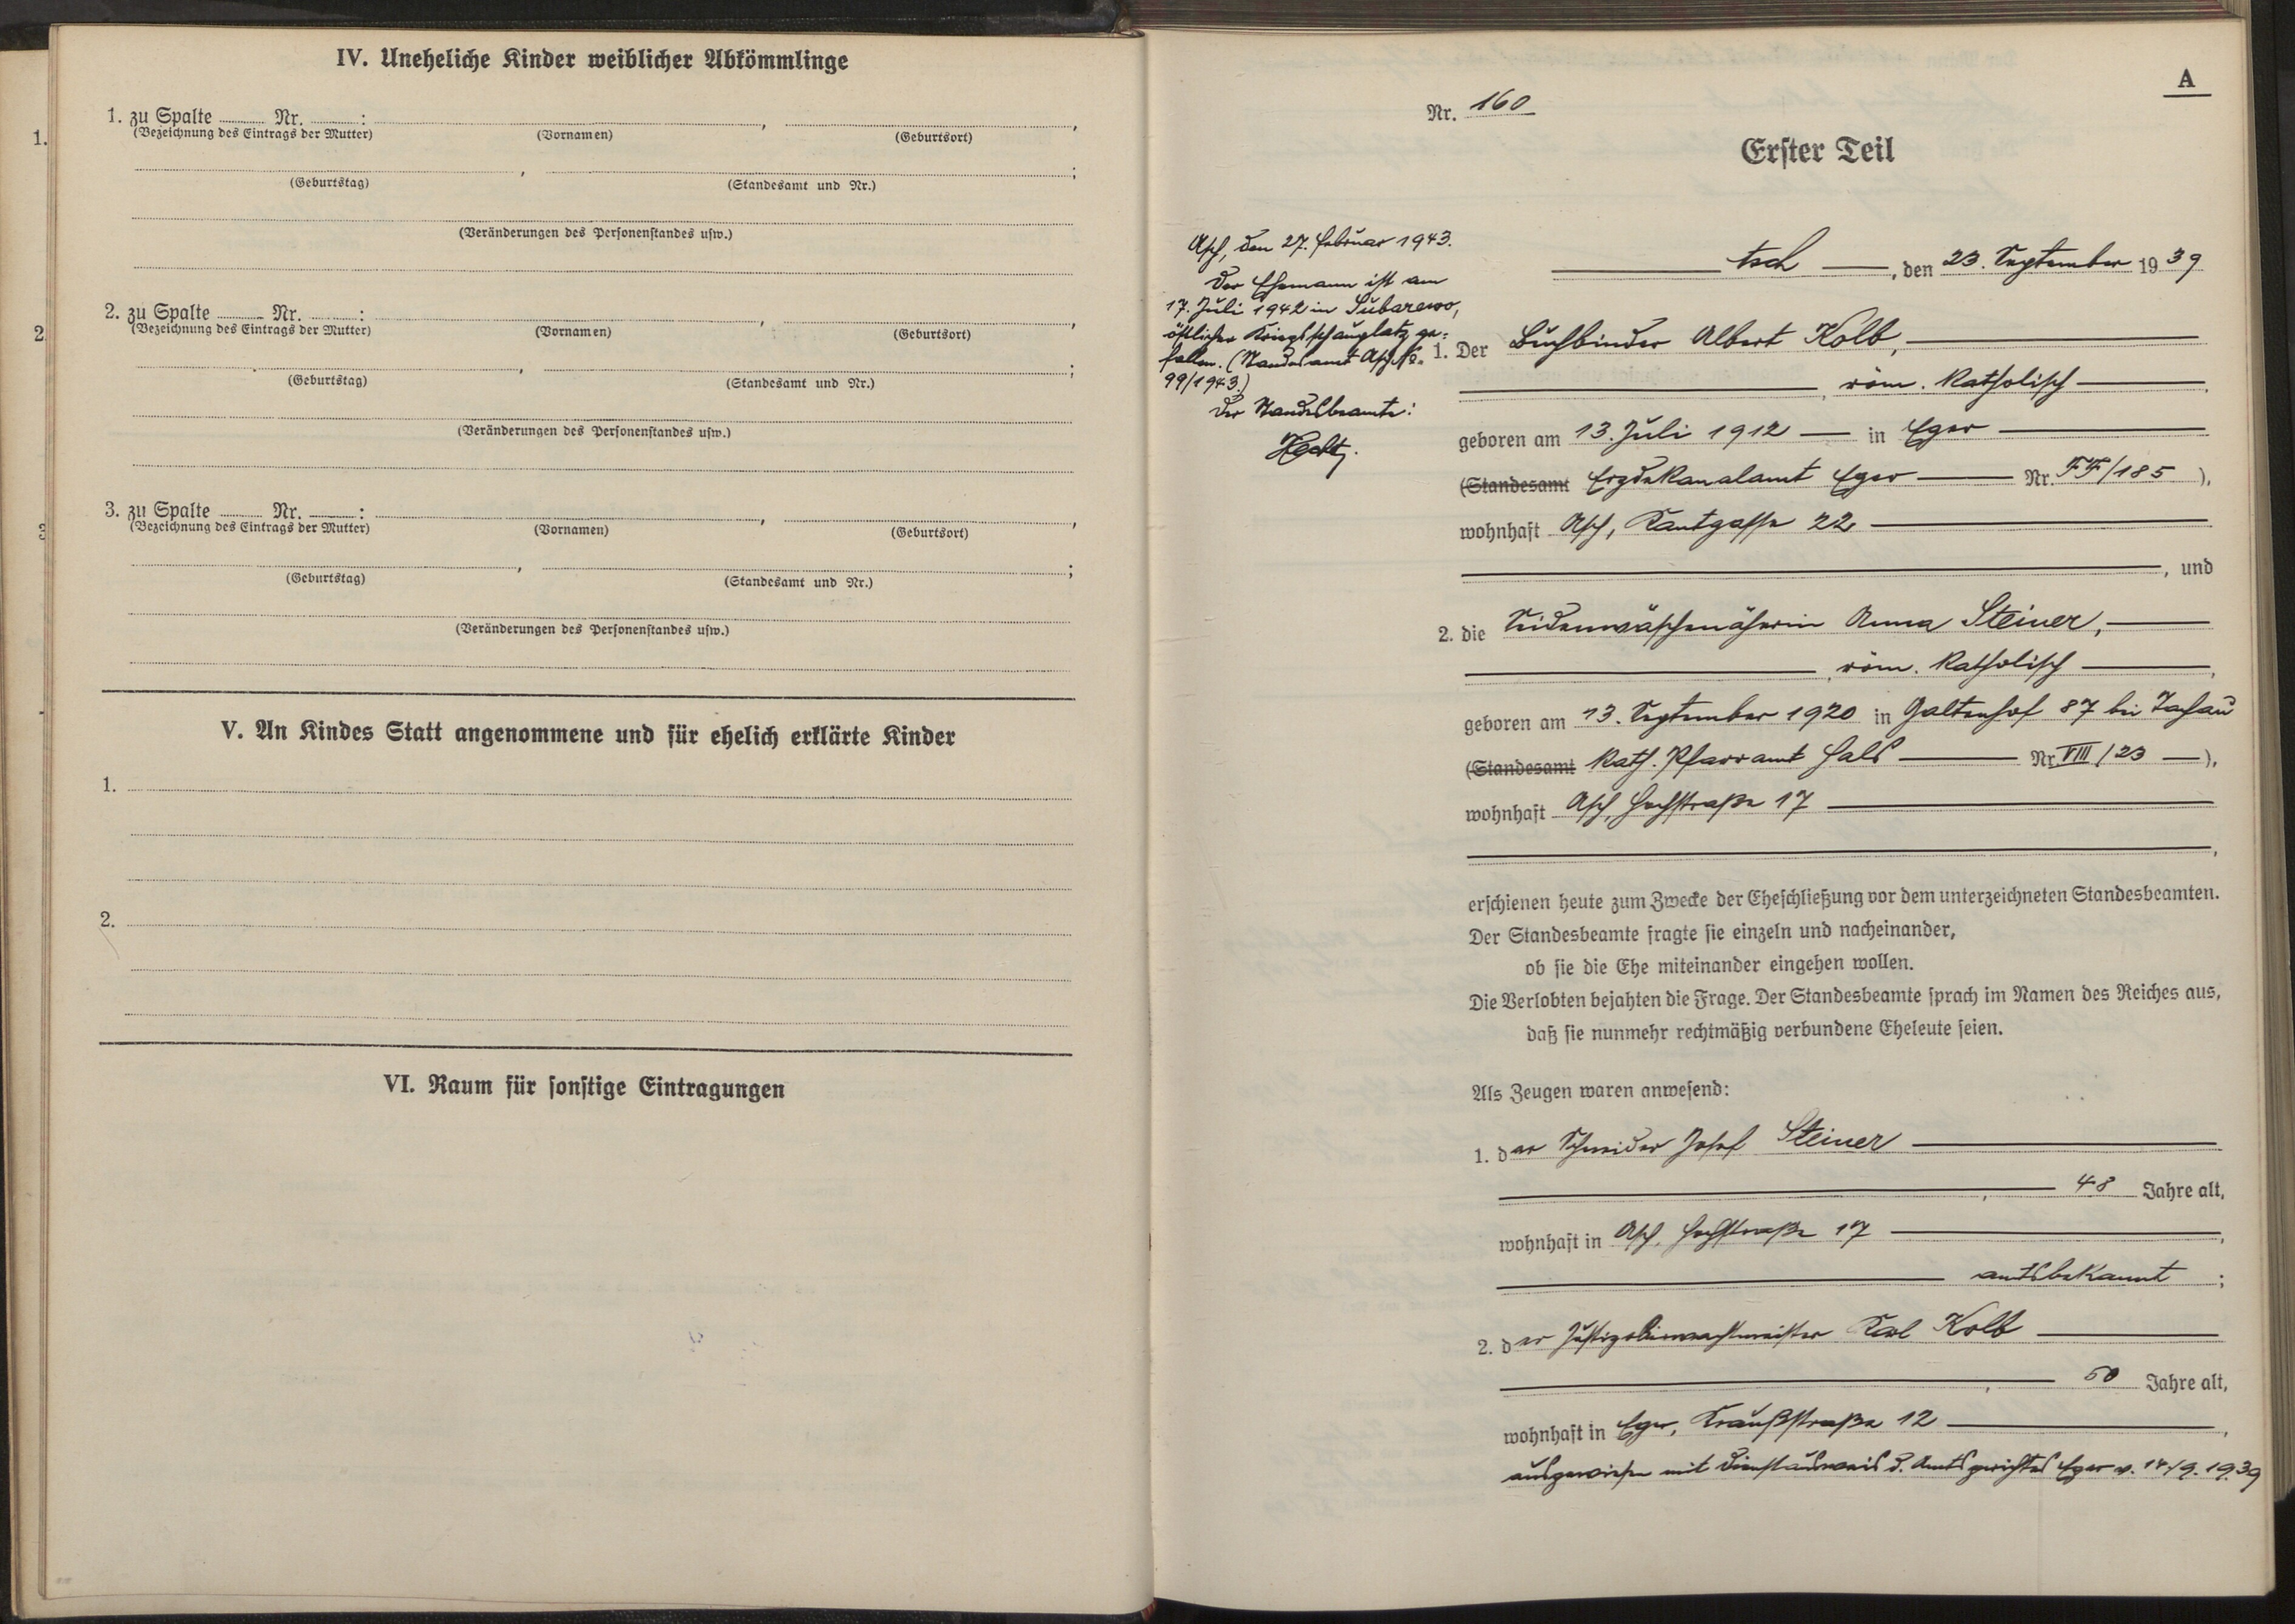 IV. Uneheliche Kinder weiblicher Abkömmlinge
1. zu Spalte Nr. : , ,
(Bezeichnung des Eintrags der Mutter) (Vornamen) (Geburtsort)
, ;
(Geburtstag) (Standesamt und Nr.)
(Veränderungen des Personenstandes usw.)
2. zu Spalte Nr. : , ,
(Bezeichnung des Eintrags der Mutter) (Vornamen) (Geburtsort)
, ;
(Geburtstag) (Standesamt und Nr.)
(Veränderungen des Personenstandes usw.)
3. zu Spalte Nr. : , ,
(Bezeichnung des Eintrags der Mutter) (Vornamen) (Geburtsort)
, ;
(Geburtstag) (Standesamt und Nr.)
(Veränderungen des Personenstandes usw.)
V. An Kindes Statt angenommene und für ehelich erklärte Kinder
1.
2.
VI. Raum für sonstige Eintragungen
A
Nr. 160
Erster Teil
Asch, den 27. Februar 1943.
Der Ehemann ist am
17. Juli 1942 in Subarewo,
östlicher Kriegsschauplatz ge-
fallen. (Standesamt Asch Nr.
99/1943.)
Der Standesbeamte:
, den 23. September 1939
1. Der Buchbinder Albert Kolb,
, röm. katholisch ,
geboren am 13. Juli 1912 in Eger
(Standesamt Erzdekanalamt Eger Nr. FF/185 ),
wohnhaft Asch, Kantgasse 22
, und
2. die Seidenwäschenäherin Anna Steiner,
, röm. katholisch ,
geboren am 13. September 1920 in Galtenhof 87 bei Tachau
(Standesamt Kath. Pfarramt Hals Nr. VIII/23 ),
wohnhaft Asch, Hochstraße 17
,
erschienen heute zum Zwecke der Eheschließung vor dem unterzeichneten Standesbeamten.
Der Standesbeamte fragte sie einzeln und nacheinander,
ob sie die Ehe miteinander eingehen wollen.
Die Verlobten bejahten die Frage. Der Standesbeamte sprach im Namen des Reiches aus,
daß sie nunmehr rechtmäßig verbundene Eheleute seien.
Als Zeugen waren anwesend:
1. der Schneider Josef Steiner
, 48 Jahre alt,
wohnhaft in Asch, Hochstraße 17 ,
amtsbekannt ;
2. der Karl Kolb
, 50 Jahre alt,
wohnhaft in Eger, Straße 12 ,
ausgewiesen mit Dienstausweis d. Amtsgerichtes Eger v. 1939